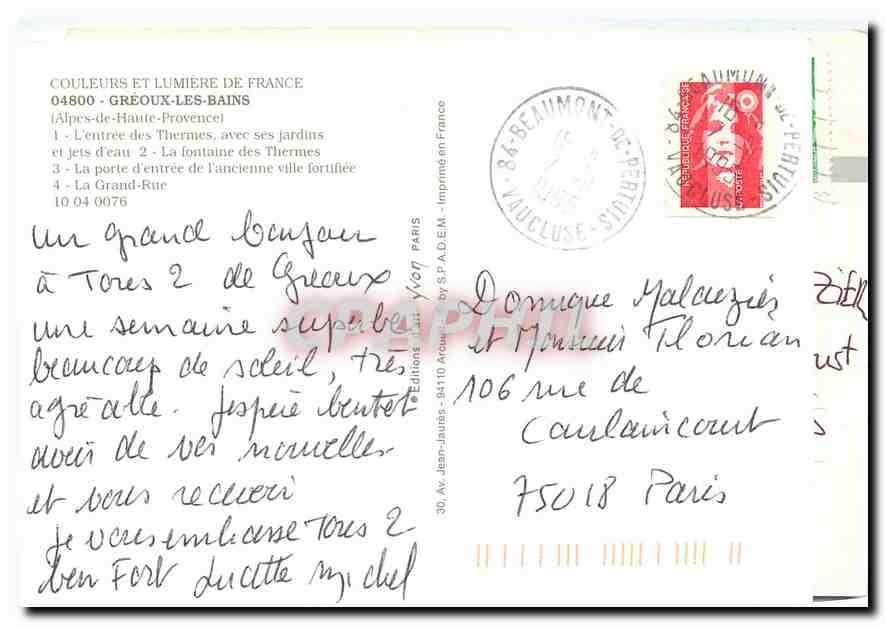 COULEURS ET LUMIÈRE DE FRANCE
04800 - GRÉOUX-LES-BAINS
(Alpes-de-Haute-Provence)
1 - L'entrée des Thermes, avec ses jardins
et jets d'eau 2 - La fontaine des Thermes
3 - La porte d'entrée de l'ancienne ville fortifiée
4 - La Grand-Rue
10 04 0076
un grand bonjour
à Tores 2 de Gréoux
une semaine superbe
beaucoup de soleil, très
agréable. J'espère bentot
avoir de vos nouvelles
et vous recevoir
je vous embrasse Tores 2
ben Fort Lucette Michel
Editions d'art YVON PARIS
30, Av. Jean-Jaurès - 94110 Arcueil by S.P.A.D.E.M. - Imprimé en France
84-BEAUMONT-DE-PERTUIS
VAUCLUSE
RÉPUBLIQUE FRANÇAISE
LA POSTE
84-BEAUMONT-DE-PERTUIS
VAUCLUSE
CPAPHIL
Dominique Malauziés
et Monsieur Florian
106 rue de
Caulaincourt
75018 Paris